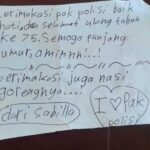 terimakasi pak polisi baik
hati, dan selamat ulang tahun
ke 75. Semoga panjang
umur. aminnn!..!
terimakasi juga nasi
gorengnya....!
dari sabilla
I ♡ Pak
polisi